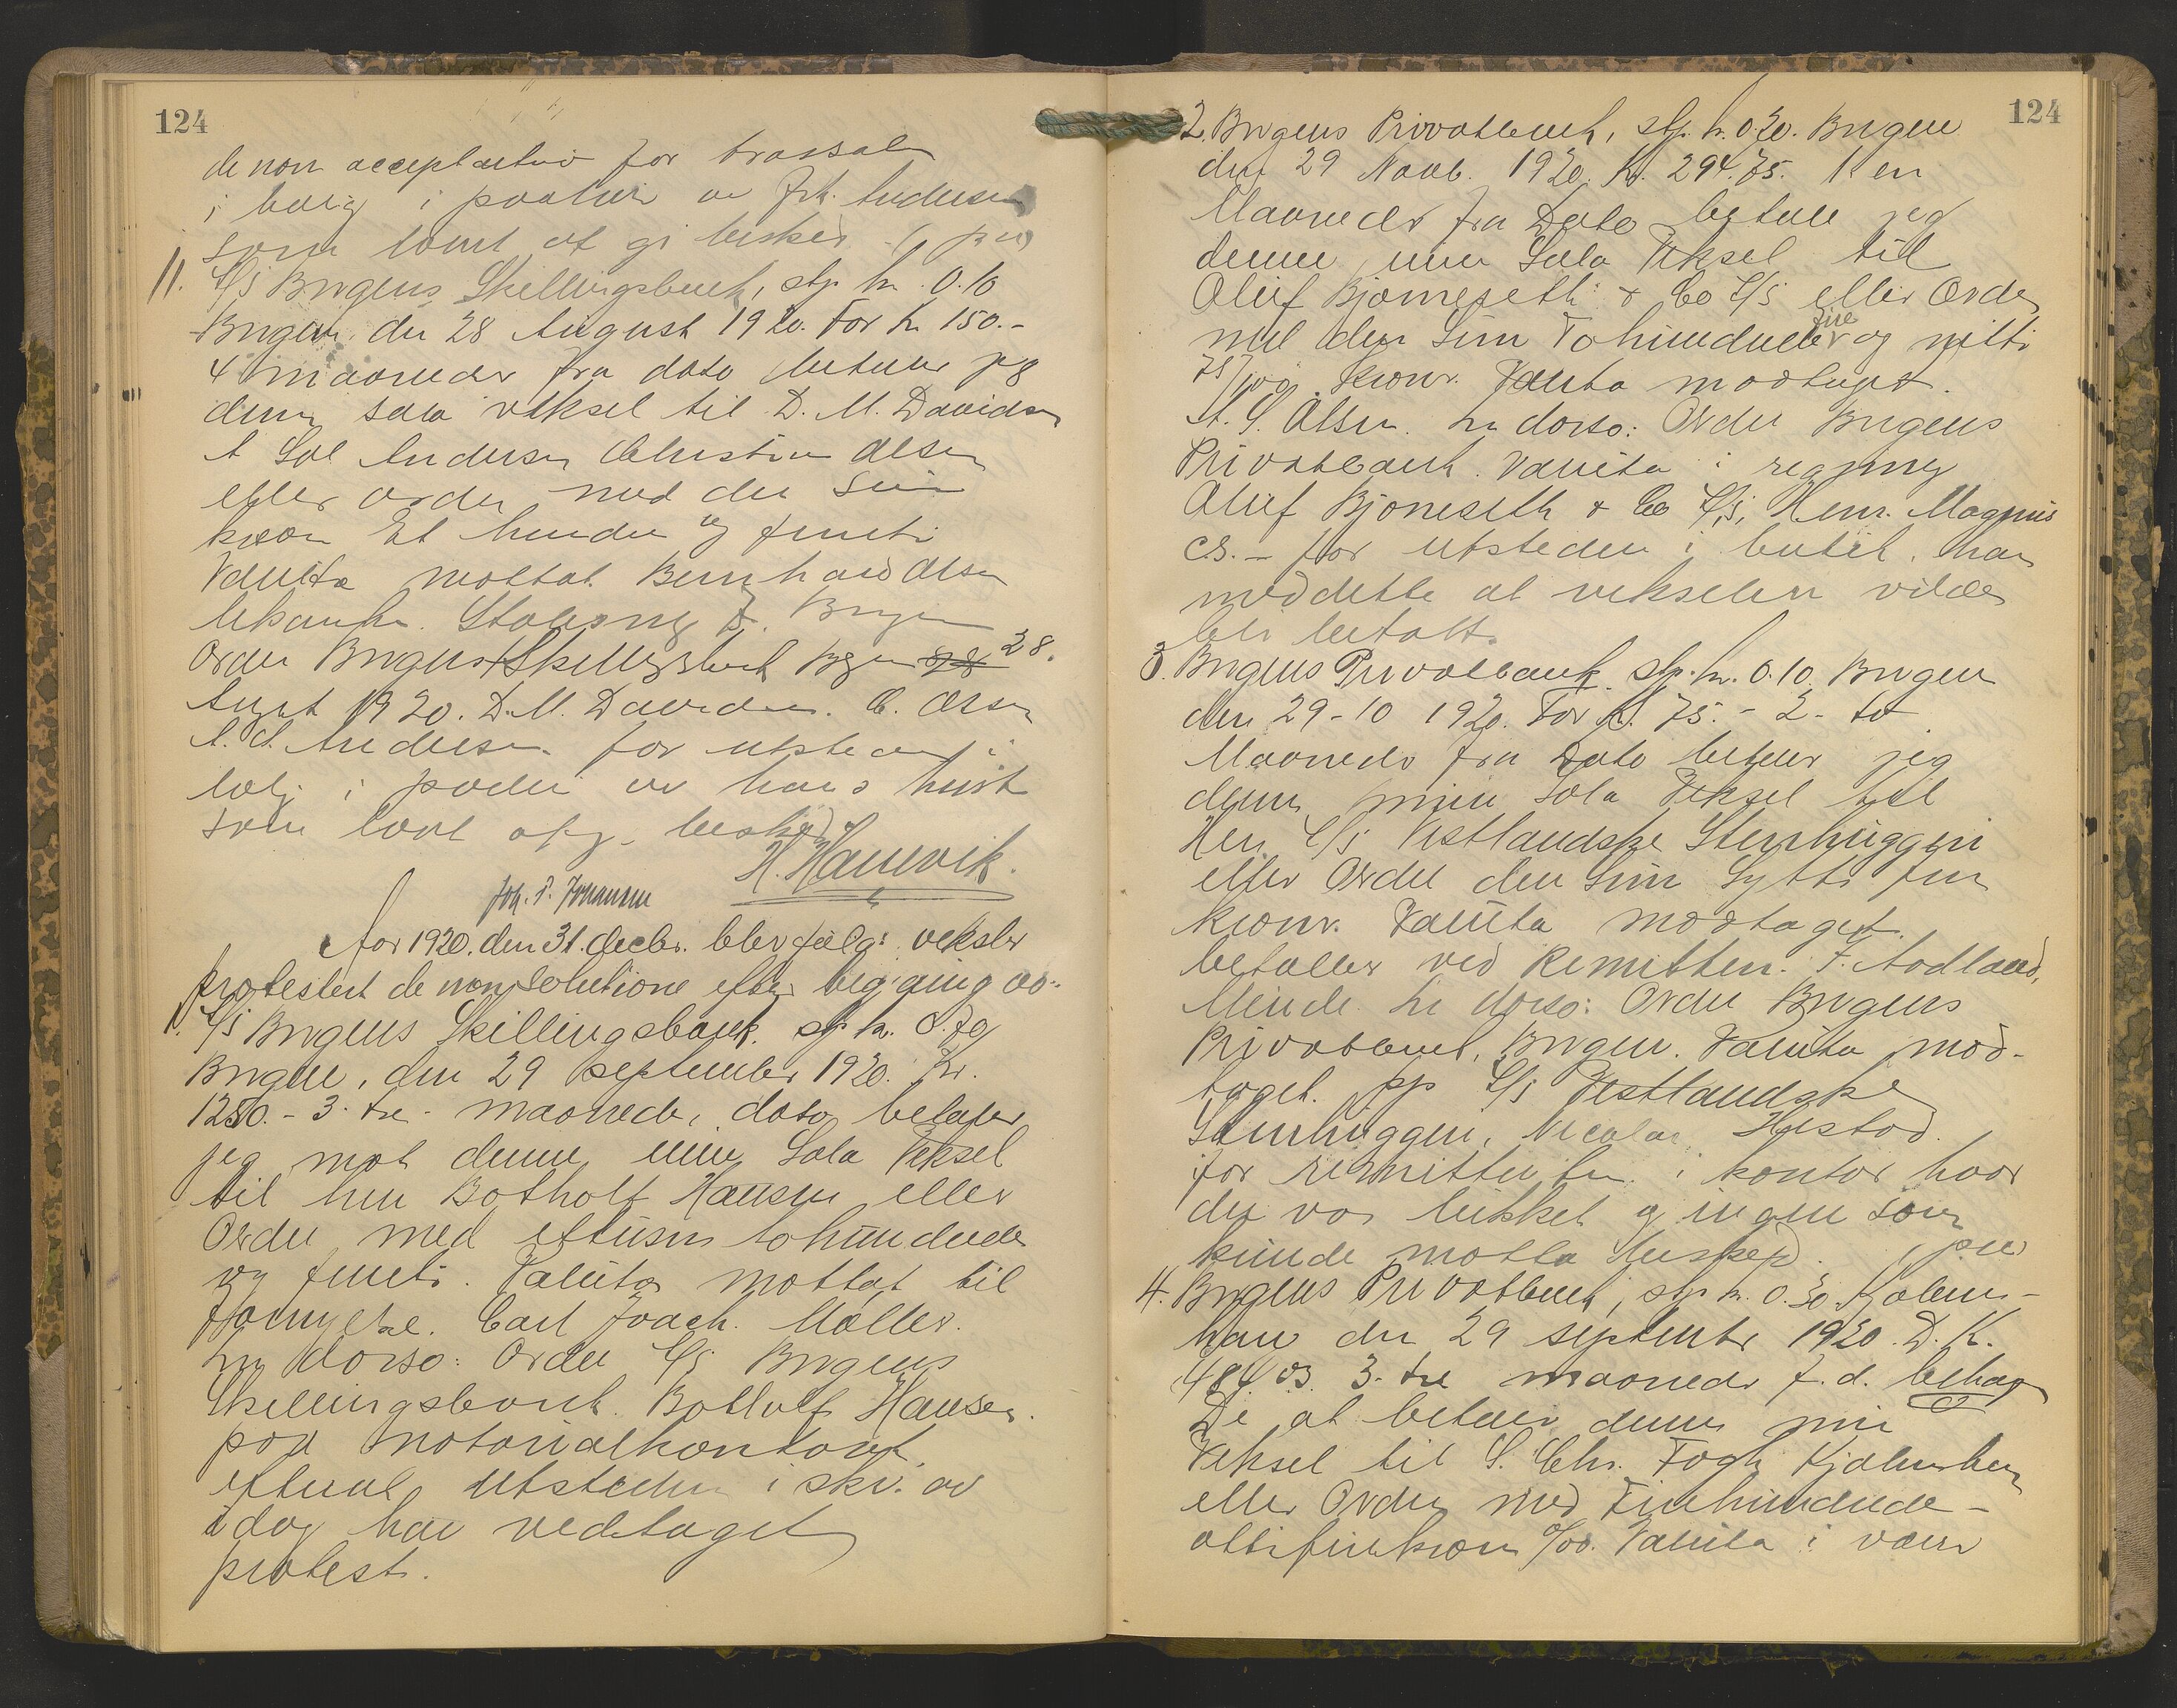 124
de non acceptation for trassaten
i bolig i paahør av Frk. Andersen
som lovet at gi besked.
11. A/S Bergens Skillingsbank, stp. kr. 0.10
Bergen den 28 August 1920. For kr 150.-
4 maaneder fra dato betaler jeg
denne sola veksel til D. M. Davidsen
A Sol Andersen Christian Olsen
eller ordre med den Sum
kroner Et hundre og femti
Valuta mottat. Bernhard Olsen
Bergen
Ordre Bergens Skillingsbank Bergen 28.
August 1920. D. M. Davidsen. C. Olsen
A. S. Andersen. for utstederen i
bolig i paahør av hans hustru
som lovet at gi besked.
H. Hauvik.
Joh. P. Johansen
Aar 1920. den 31. decbr. blev følg. veksler
protestert de non solutione efter begjæring av:
1. A/S Bergens Skillingsbank. stp. kr. 0.70
Bergen, den 29 september 1920. Kr.
1250.- 3. tre - maaneder, dato betaler
jeg mot denne min Sola Veksel
til herr Botholf Hansen eller
Ordre med ettusen tohundrede
og femti. Valuta mottat til
fornyelse. Carl Joach. Møller.
In dorso: Ordre A/S Bergens
Skillingsbank. Botholf Hansen.
paa notarialkontoret,
eftersat utstederen i skr. av
idag har vedtaget
protest.
124
2. Bergens Privatbank, stp. kr. 0.20. Bergen
den 29 Novb. 1920. Kr. 294.75. 1 en
Maaneder fra Dato betaler jeg
denne min Sola Veksel till
Oluf Bjørneseth & Co A/S eller Ordre
med den Sum Tohundrede fire og nitti
75/100 Kroner. Valuta modtaget.
A. S. Olsen. In dorso: Ordre Bergens
Privatbank. Valuta i regning
Oluf Bjørneseth & Co A/S, Henr. Magnus
for utstederen i butik. han
meddelte at vekselen vilde
bli betalt.
3. Bergens Privatbank. stp. kr. 0.10. Bergen
den 29-10 1920. For Kr. 75.- 2- to
Maaneder fra Dato betaler jeg
denne min Sola Veksel til
Herr A/S Vestlandske Stenhuggeri
eller Ordre den Sum Sytti fem
kroner. Valuta modtaget.
betales ved Remittenten. T. Aadland,
Minde. In dorso: Ordre Bergens
Privatbank, Bergen. Valuta mod-
taget. pp A/S Vestlandske
Stenhuggeri, Nicolai Hystad.
for remittenten i kontor hvor
der var lukket og ingen som
kunde motta besked.
4. Bergens Privatbank, stp. kr. 0.30. Kjøben-
havn den 29 septembr 1920. D. K.
484.03. 3. tre maaneder f. d. behag
De at betale denne min
Veksel til S. Chr. Fogh Kjøbenhavn
eller Ordre med Firehundrede-
ottifirekroner Valuta i vare